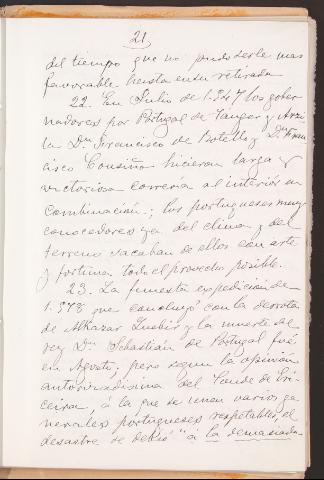 21
del tiempo que no pudo serle mas
favorable hasta en su retirada
22. En Julio de 1.547 los gober
nadores por Portugal de Tanger y Arzi
la Dn. Francisco de Botello y Dn. Fran
cisco Coutiño hicieron larga y
victoriosa correria al interior en
combinación; los portugueses muy
conocedores ya del clima y del
terreno sacaban de ellos con arte
y fortuna todo el provecho posible.
23. La funesta expedicion de
1.578 que concluyó con la derrota
de Alkazar Quebir y la muerte del
rey Dn. Sebastián de Portugal fué
en Agosto; pero segun la opinión
autorizadisima del Conde de Eri
ceira, á la que se unen varios ge
nerales portugueses respetables, el
desastre se debió "á la demasiada